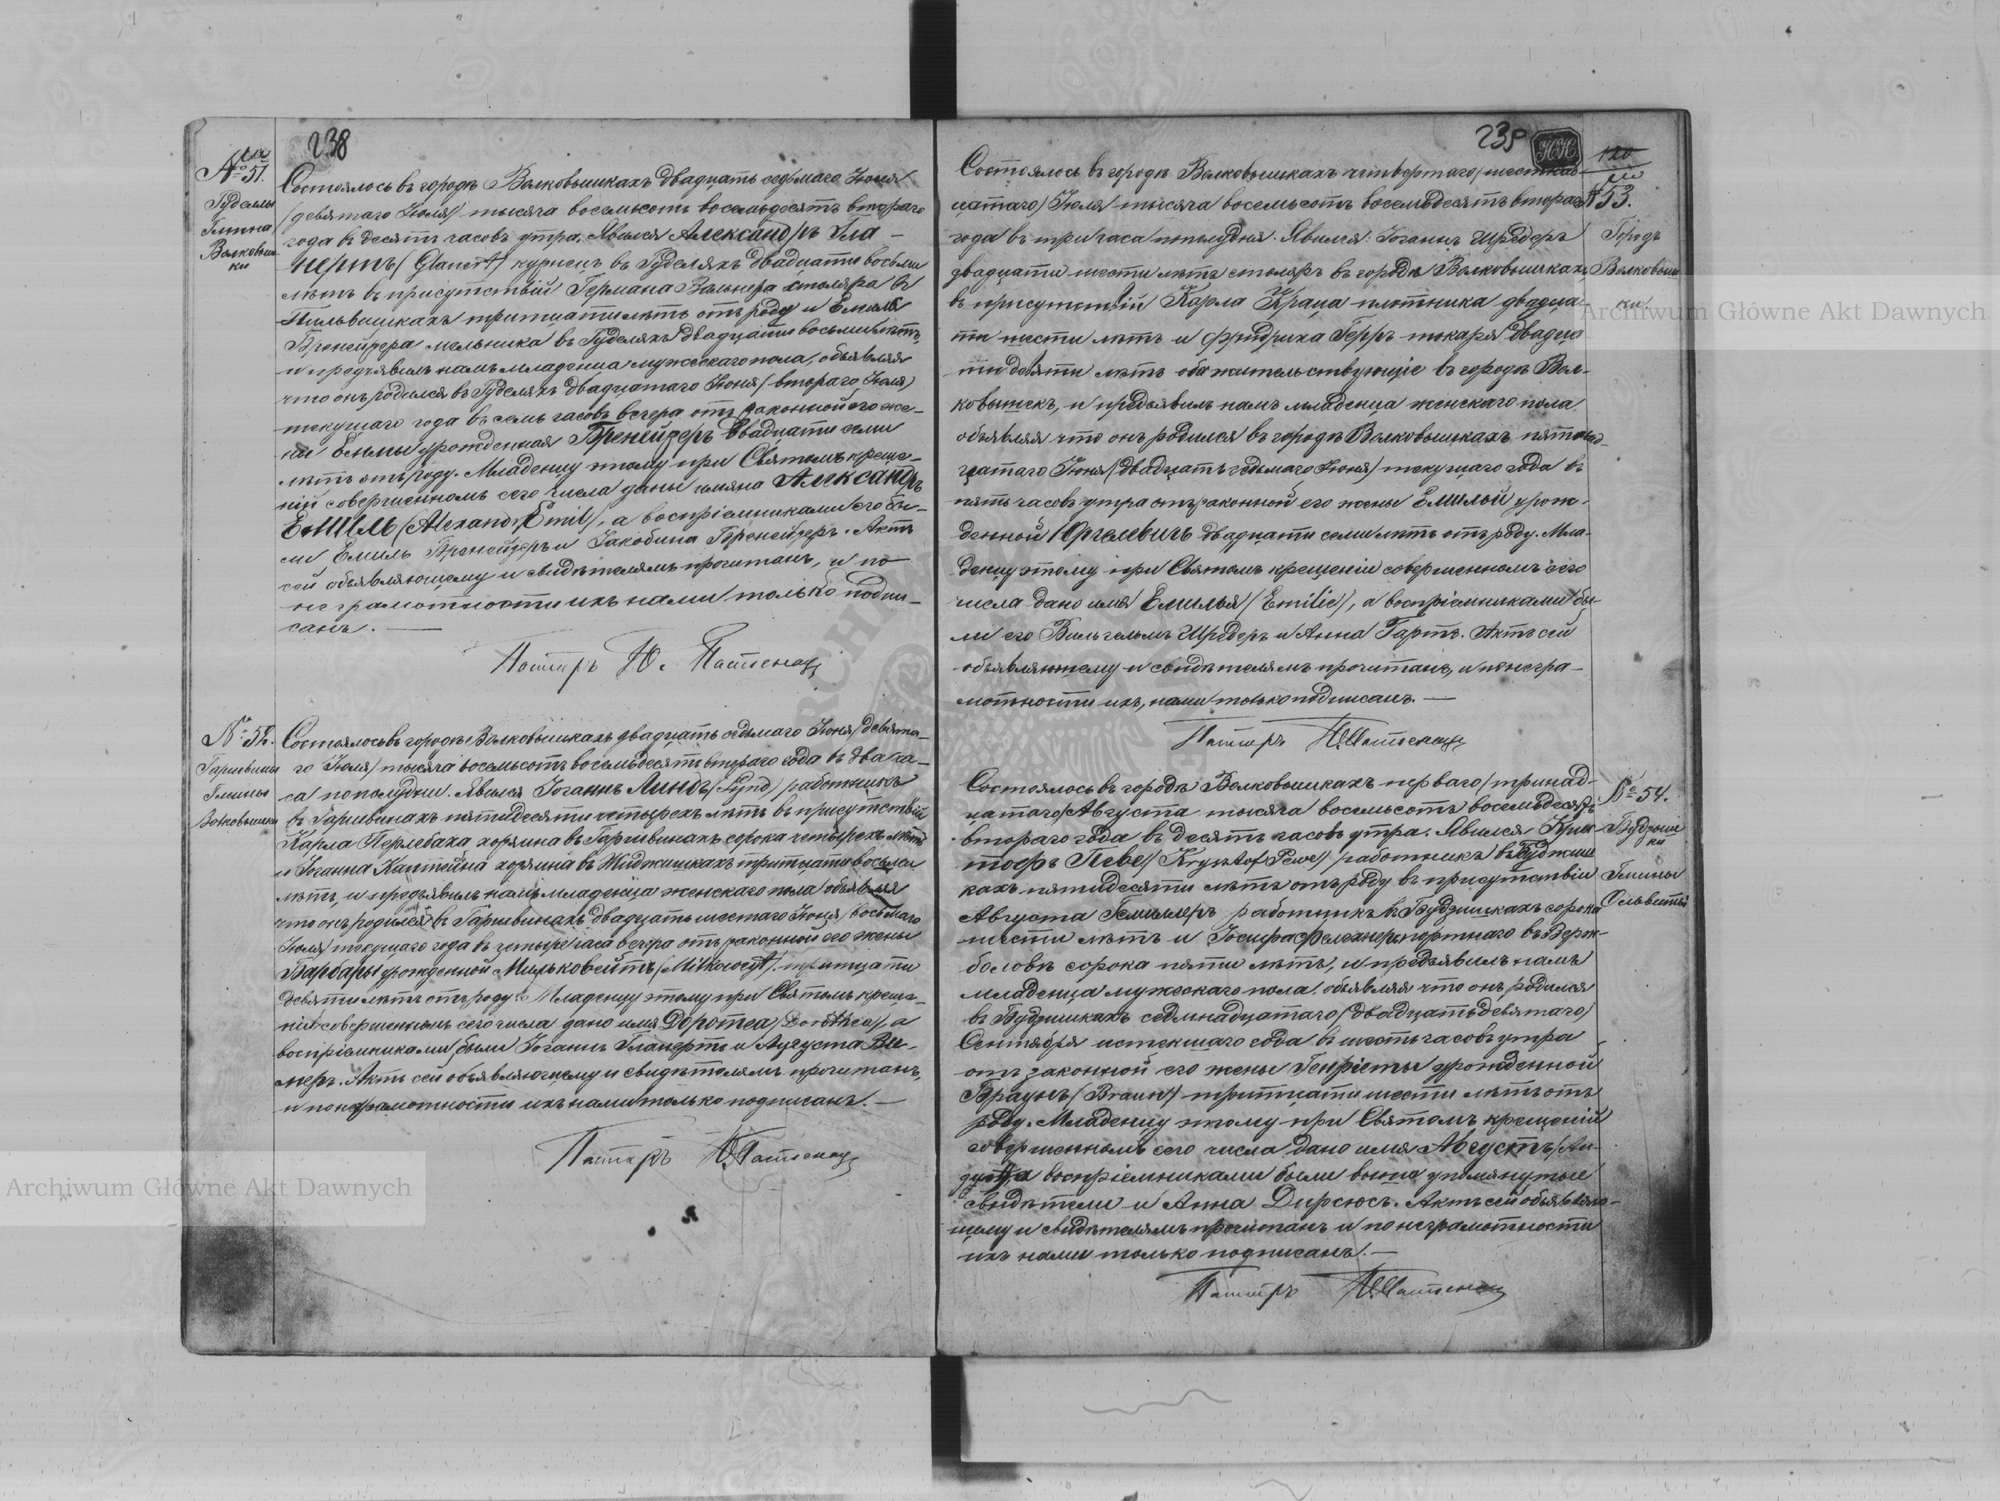 238
№ 51.
Гуделы
Гмина
Волковыш-
ки
Состоялось въ городѣ Волковышкахъ двадцать седьмаго Іюня
/девятаго Іюля/ тысяча восемьсотъ восемьдесятъ втораго
года въ десять часовъ утра. Явился Александръ Гла-
нертъ /Glanert/ кузнецъ въ Гуделяхъ двадцати восьми
лѣтъ въ присутствіи Германа Вальнера столяра въ
Пильвишкахъ тритцати лѣтъ отъ роду и Емиля
Пренейзера мельника въ Гуделяхъ двадцати восьми лѣтъ,
и предъявилъ намъ младенца мужескаго пола, объявляя
что онъ родился въ Гуделяхъ двадцатаго Іюня /втораго Іюля/
текущаго года въ семь часовъ вечера отъ законной его же-
ны Еммы урожденная двадцати семи
лѣтъ отъ роду. Младенцу этому при Святомъ креще-
ніи совершенномъ сего числа даны имяна Александръ
Емиль /Alexandr Emil/, а воспріемниками его бы-
ли Емиль и Якобина Актъ
сей объявляющему и свидѣтелямъ прочитанъ, и по
неграмотности ихъ нами только подпи-
санъ. —
Пасторъ Ю.
№ 52.
Гмины
Волковышки
Состоялось въ городѣ Волковышкахъ двадцать седьмаго Іюня /девята-
го Іюля/ тысяча восемьсотъ восемьдесятъ втораго года въ два ча-
са пополудни. Явился Іоганнъ Линдъ /Lynd/ работникъ
въ пятидесяти четырехъ лѣтъ въ присутствіи
Карла Перлебаха хозяина въ сорока четырехъ лѣтъ
и Іоанна хозяина въ тритцати восьми
лѣтъ, и предъявилъ намъ младенца женскаго пола объявляя
что онъ родился въ двадцать шестаго Іюня /восьмаго
Іюля/ текущаго года въ четыре часа вечера отъ законной его жены
Барбары урожденной Мильковейтъ /Milkoweyt/ тритцати
девяти лѣтъ отъ роду. Младенцу этому при Святомъ креще-
ніи совершенномъ сего числа дано имя Доротеа /Dorothea/, а
воспріемниками были Іоганнъ Гланертъ и Аугуста Ви-
неръ. Актъ сей объявляющему и свидѣтелямъ прочитанъ,
и по неграмотности ихъ нами только подписанъ. —
Пасторъ Ю.
239
120
№ 53.
Градъ
Волковыш-
ки
Состоялось въ городѣ Волковышкахъ четвертаго /шестнад-
цатаго/ Іюля тысяча восемьсотъ восемьдесятъ втораго
года въ три часа пополудни. Явился: Іоганнъ Шредеръ
двадцати шести лѣтъ столяръ въ городѣ Волковышкахъ
въ присутствіи Карла Краца плотника двадца-
ти шести лѣтъ и Фридриха Герръ токаря двадца-
ти девяти лѣтъ оба жительствующіе въ городѣ Вол-
ковышкъ, и предъявилъ намъ младенца женскаго пола
объявляя что онъ родился въ городѣ Волковышкахъ пятнад-
цатаго Іюня /двадцать седьмаго Іюня/ текущаго года въ
пять часовъ утра отъ законной его жены Емильи урож-
денной двадцати семи лѣтъ отъ роду. Мла-
денцу этому при Святомъ крещеніи совершенномъ сего
числа дано имя Емилья /Emilie/, а воспріемниками бы-
ли его Вильгельмъ Шредеръ и Анна Гартъ. Актъ сей
объявляющему и свидѣтелямъ прочитанъ, и по негра-
мотности ихъ, нами только подписанъ. —
Пасторъ Ю.
№ 54.
Гмины
Состоялось въ городѣ Волковышкахъ перваго /тринад-
цатаго/ Августа тысяча восемьсотъ восемьдесятъ
втораго года въ десять часовъ утра. Явился Криш-
тофъ Певе /Krysztof Pewe/ работникъ въ Будзиш-
кахъ пятидесяти лѣтъ отъ роду въ присутствіи
Августа работникъ въ Будзишкахъ сорока
шести лѣтъ и Іосифа портнаго въ Верж-
боловѣ сорока пяти лѣтъ, и предъявилъ намъ
младенца мужескаго пола объявляя что онъ родился
въ Будзишкахъ седмнадцатаго /двадцать девятаго/
Сентября истекшаго года въ шесть часовъ утра
отъ законной его жены Генріеты урожденной
Браунъ /Braun/ тритцати шести лѣтъ отъ
роду. Младенцу этому при Святомъ крещеніи
совершенномъ сего числа дано имя Августъ /Au-
а воспріемниками были выше упомянутые
свидѣтели и Анна Дирсюсъ. Актъ сей объявляю-
щему и свидѣтелямъ прочитанъ и по неграмотности
ихъ нами только подписанъ. —
Пасторъ Ю.
Archiwum Główne Akt Dawnych
Archiwum Główne Akt Dawnych